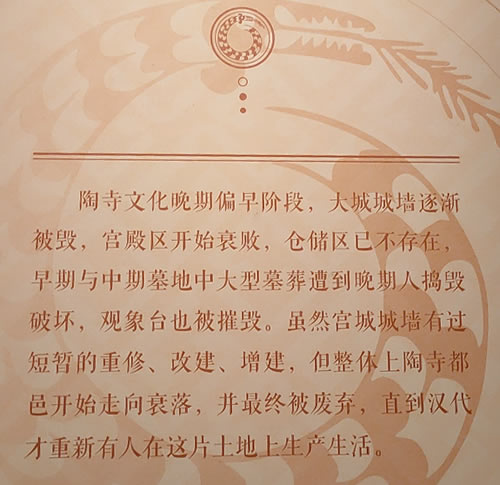 陶寺文化晚期偏早阶段，大城城墙逐渐
被毁，宫殿区开始衰败，仓储区已不存在，
早期与中期墓地中大型墓葬遭到晚期人捣毁
破坏，观象台也被摧毁。虽然宫城城墙有过
短暂的重修、改建、增建，但整体上陶寺都
邑开始走向衰落，并最终被废弃，直到汉代
才重新有人在这片土地上生产生活。